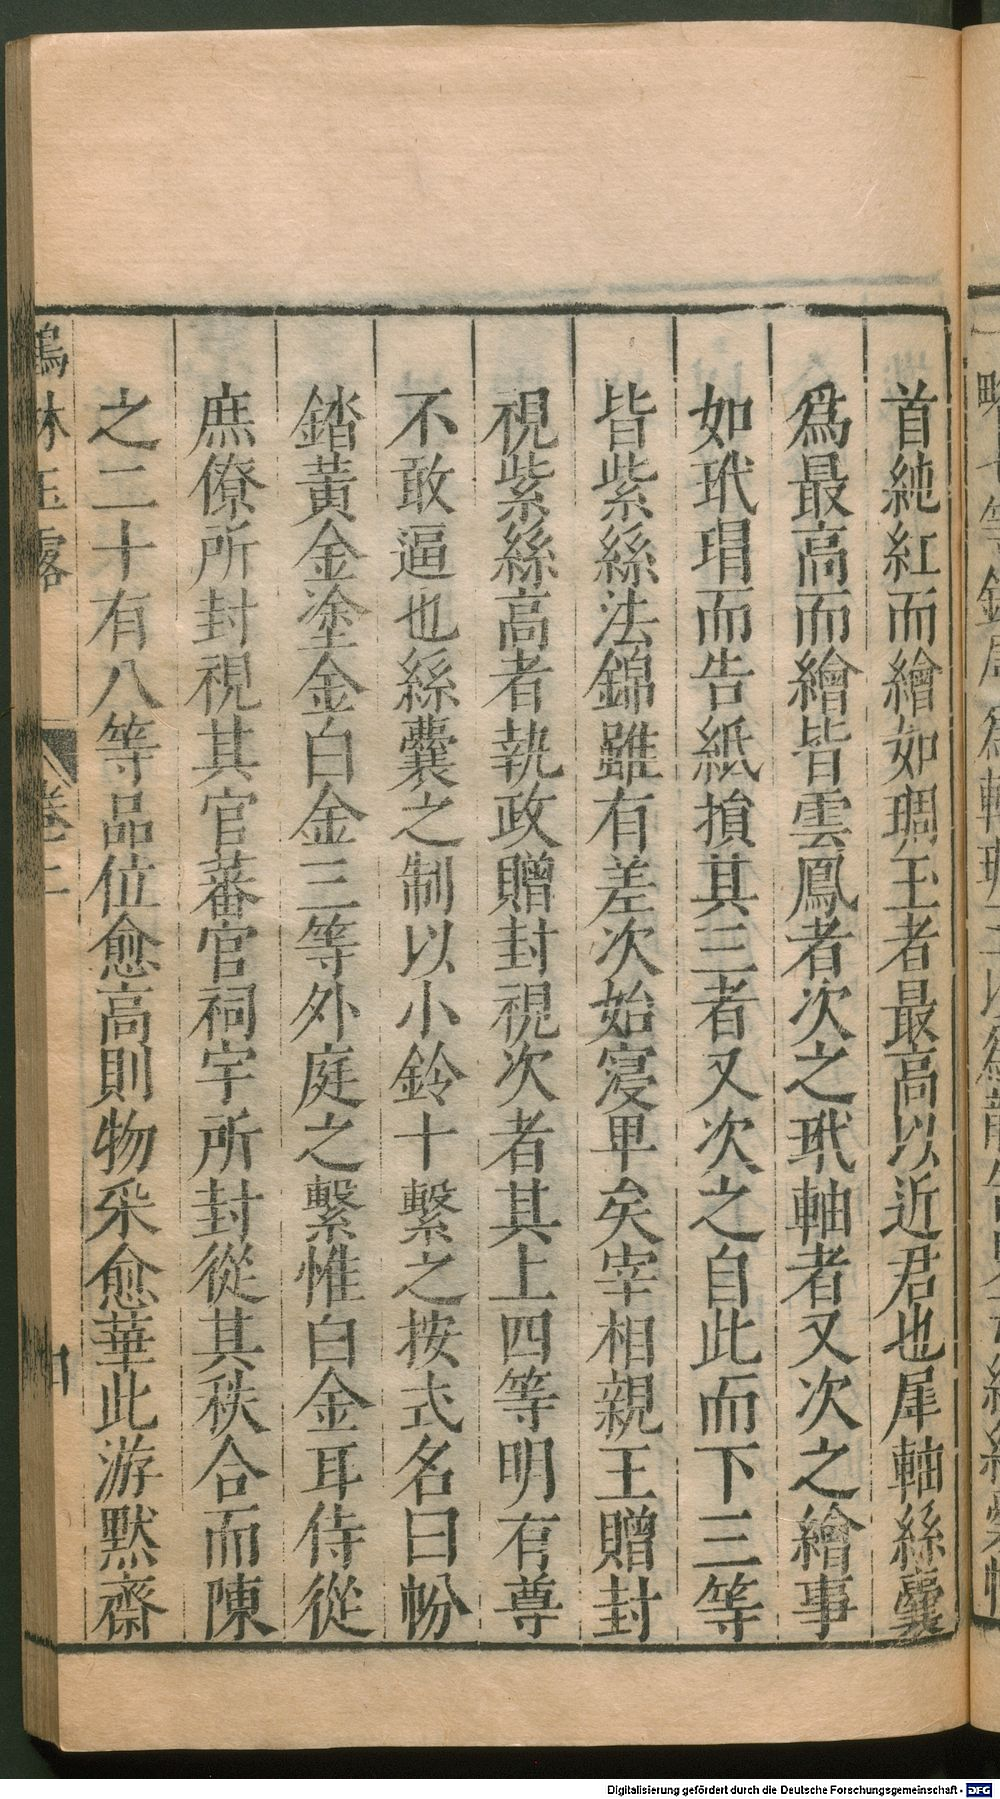 首純紅而繪如琱玉者最高以近君也犀軸絲囊
爲最高而繪皆雲鳳者次之玳軸者又次之繪事
如玳瑁而告紙損其三者又次之自此而下三等
皆紫絲法錦雖有差次始寖卑矣宰相親王贈封
視紫絲高者執政贈封視次者其上四等明有尊
不敢逼也絲囊之制以小鈴十繫之按式名曰帉
錔黃金塗金白金三等外庭之繫惟白金耳侍從
庶僚所封視其官蕃官祠宇所封從其秩合而陳
之二十有八等品位愈高則物采愈華此游默齋
林玉露
卷二
Digitalisierung gefördert durch die Deutsche Forschungsgemeinschaft - DFG